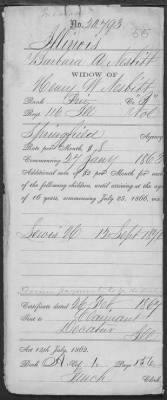 No. 32,793
Illinois
Barbara A Nesbitt
WIDOW OF
Henry N Nesbitt
Rank Priv Co
Regt 116 Ills Vol
Springfield Agency
Rate per Month $8
Commencing 27 Jany 1863
Additional sum of $2 per Month for each
of the following children, until arriving at the age
of 16 years, commencing July 25, 1866, viz:
Lewis N. 12 Sept
Certificate dated 26 Feb 1867
Sent to Claimant
Decatur
Ills
Act 14th July, 1862.
Book A Vol. 1 Page
Clerk